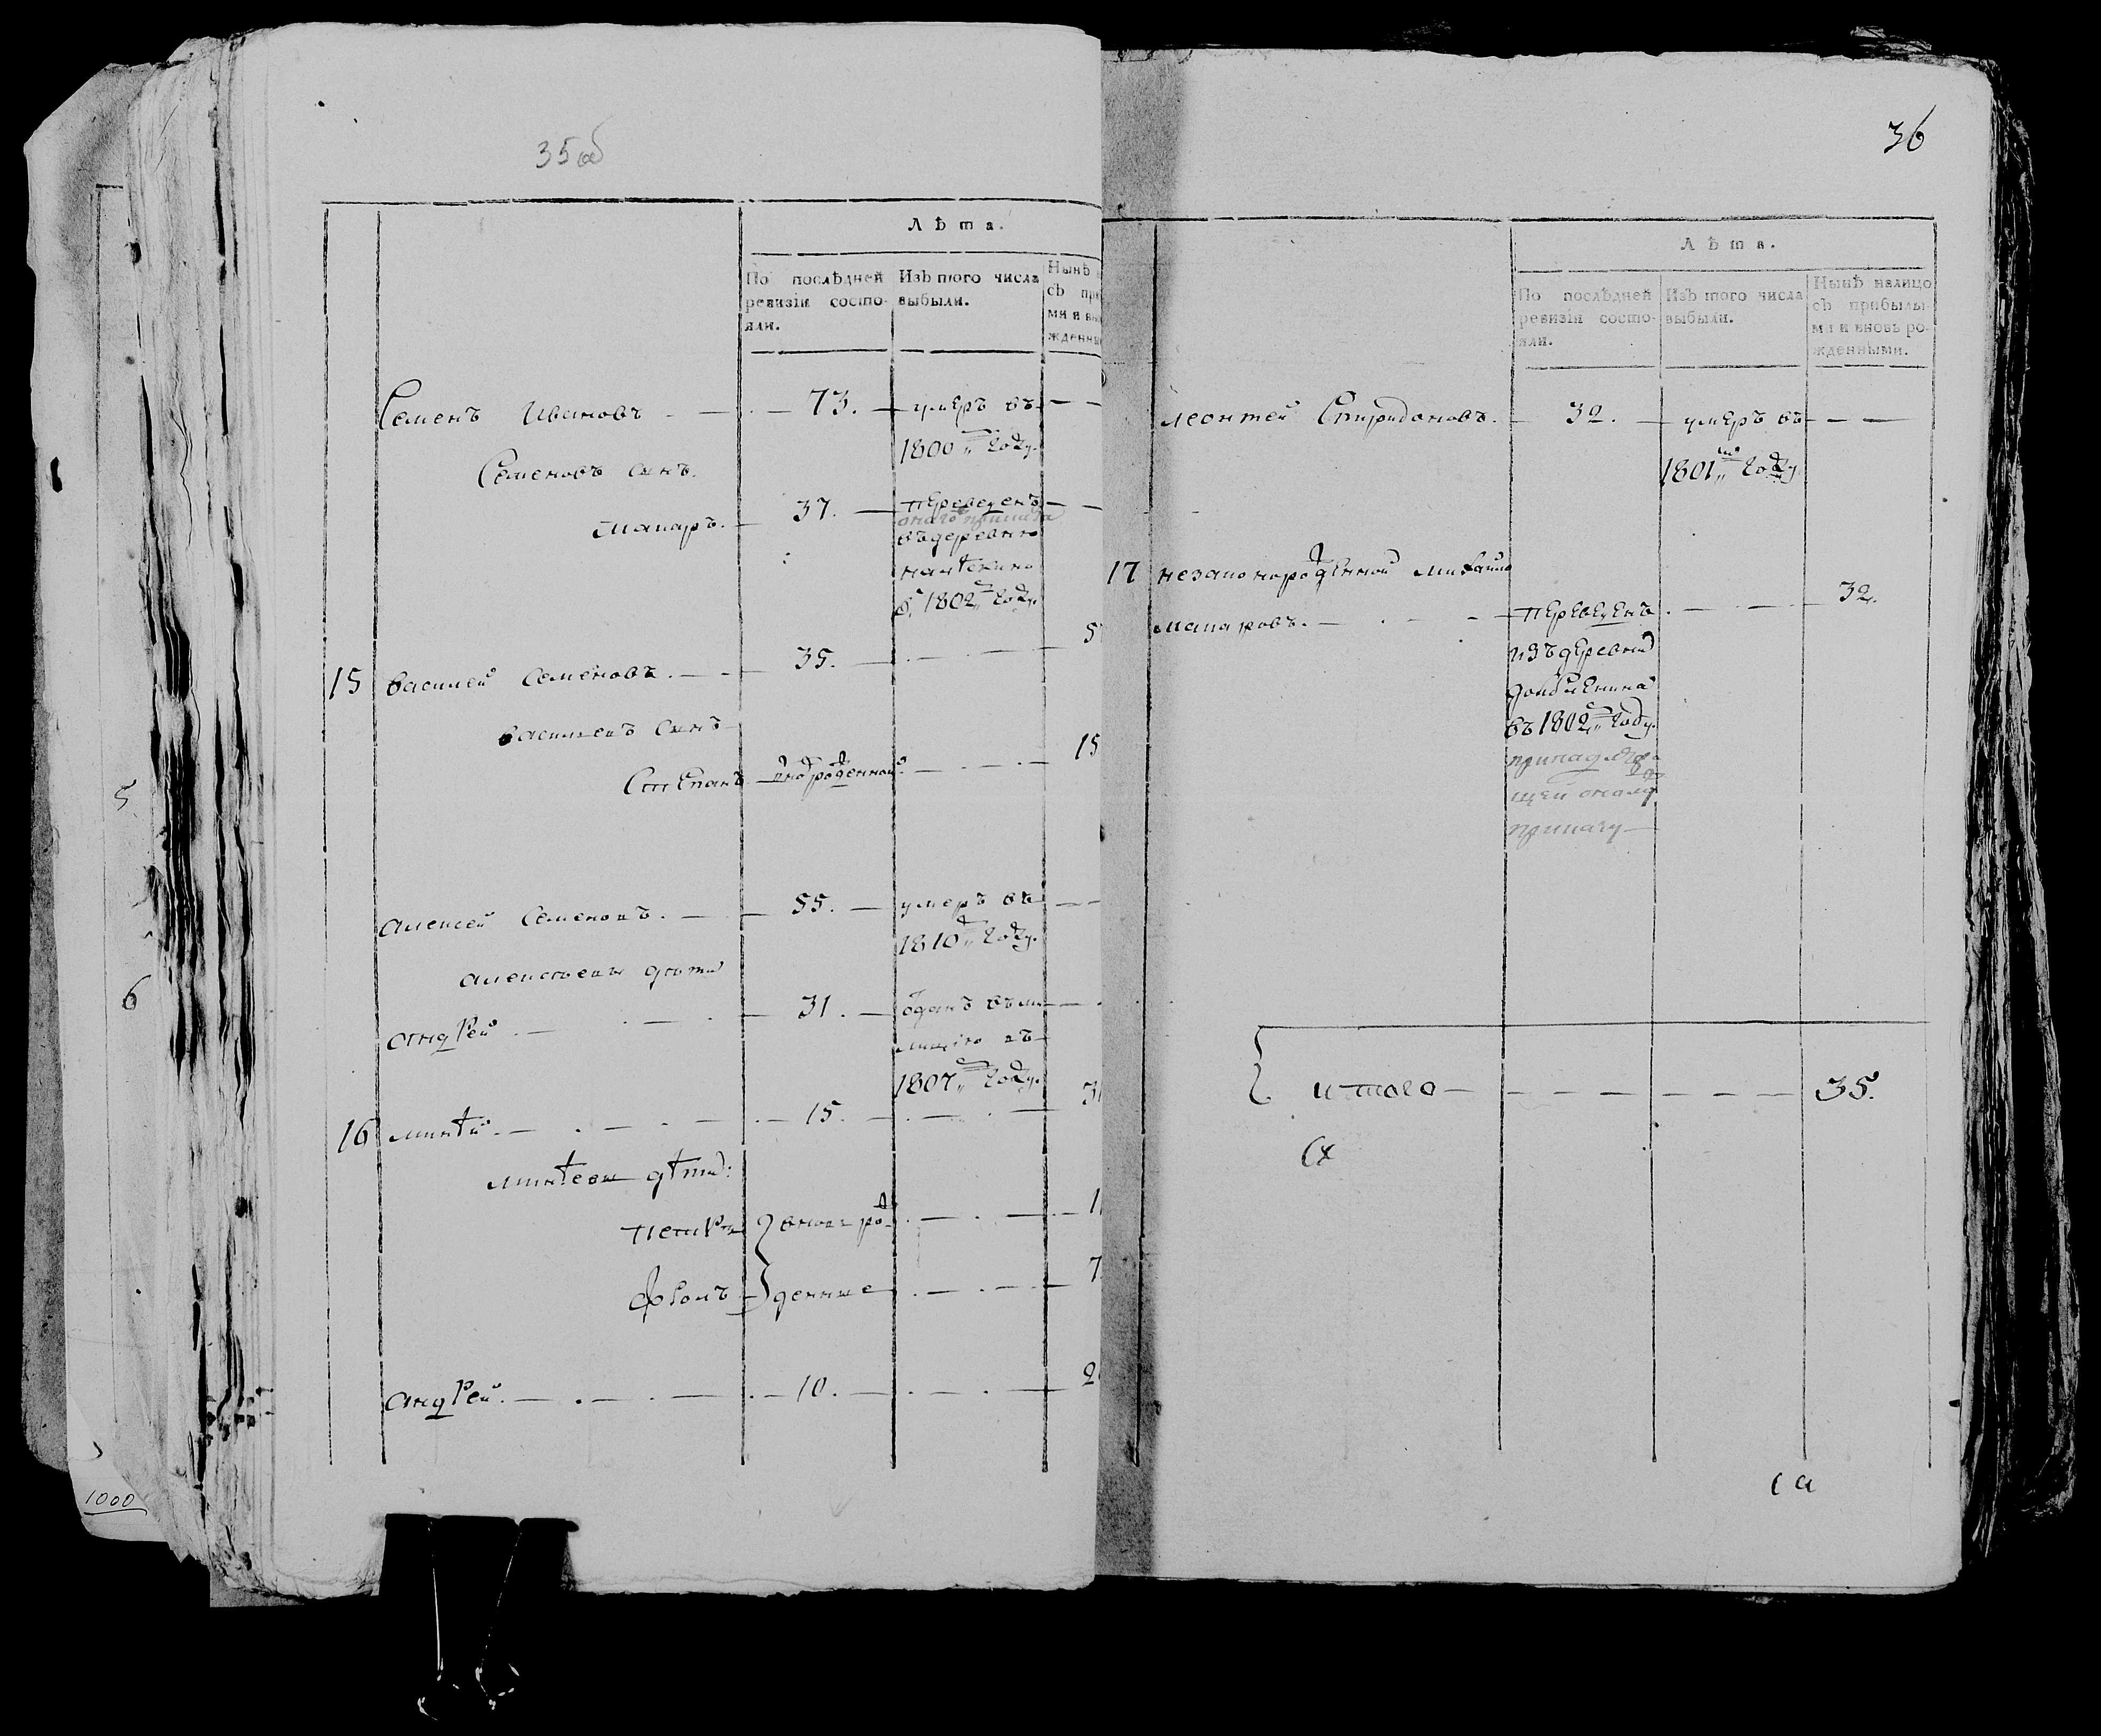 35об
Лѣта.
По послѣдней ревизіи состо-
яли.
Изъ того числа
выбыли.
Нынѣ
съ при
ми и вн
жденны
Семенъ Ивановъ 73. умеръ въ
1800м году.
Семеновъ сынъ.
Макаръ. 37. переведенъ
въ деревню
в 1802м году.
15 Василей Семеновъ. 35. 5
Васильевъ сынъ
Степанъ 15
Алексей Семеновъ. 55. умеръ въ
1810м году.
Алексѣевы дѣти
Андрей 31. отданъ въ ми
лицію въ
1807м году.
16 Минѣй. 15. 3
Минѣевы дѣти:
Петръ вновь ро- 1
денные 7
Андрей. 10. 2
36
Лѣта.
По послѣдней
ревизіи состо-
яли.
Изъ того числа
выбыли.
Нынѣ налицо
съ прибылы-
ми и вновь ро-
жденными.
Леонтей Спиридоновъ. 32. умеръ въ
1801мъ году
17 незаконорожденной Михайло
Макаровъ. переведенъ 32.
изъ деревни
въ 1802м году.
принадлежа-
щей оному
итого 35.
5
6
1000